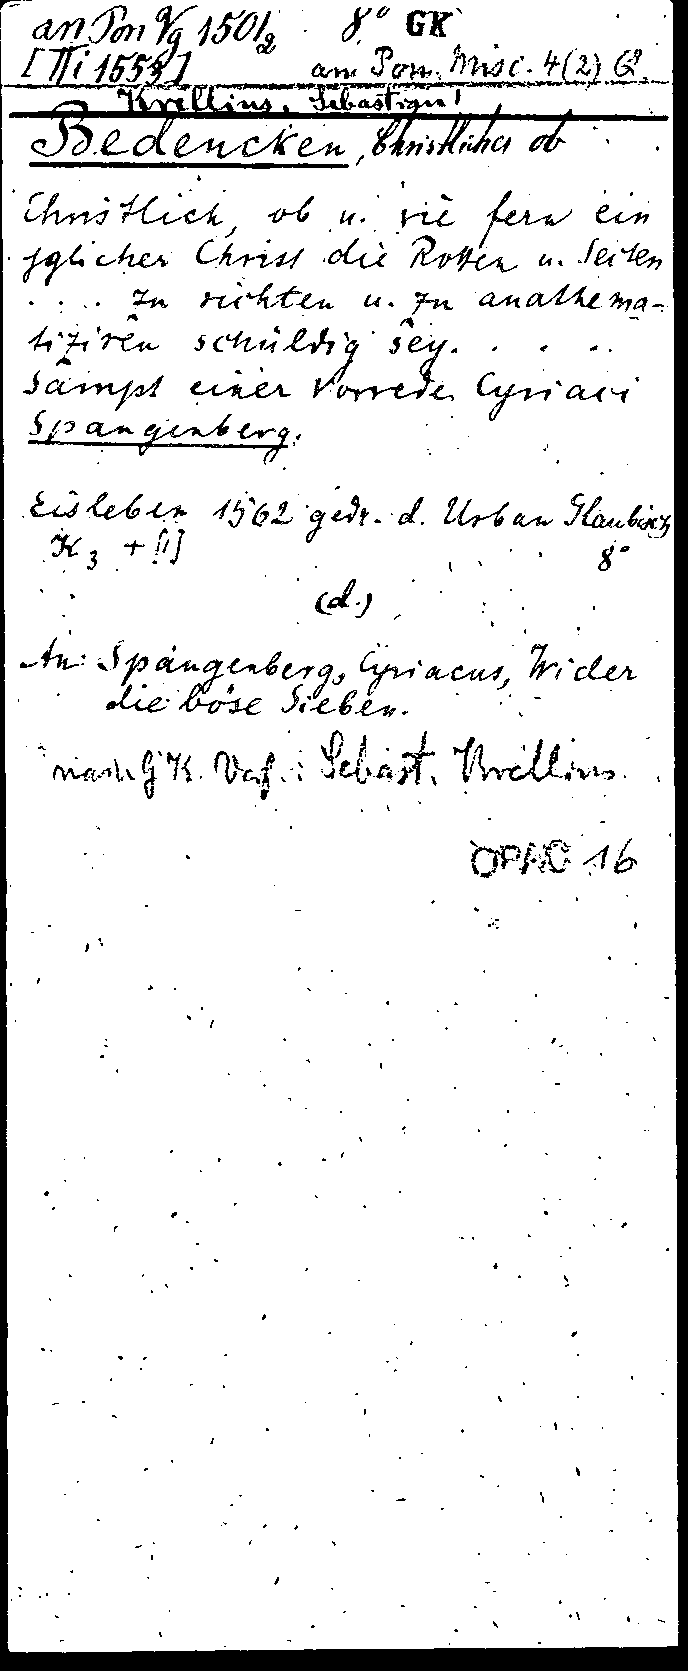 an Pon Vg 1501/2 8° GK
[Ti 1553] an Pom. Misc. 4(2) Q.
Krellius, Sebastian!
Bedencken, Christliches ob
Christlich, ob u. wie fern ein
jglicher Christ die Rotten u. Secten
.... zu richten u. zu anathema-
tiziren schuldig sey. . . . .
Sampt einer Vorrede Cyriaci
Spangenberg.
Eisleben 1562 gedr. d. Urban Gaubisch
K3 + [1] 8°
(d.)
An: Spangenberg, Cyriacus, Wider
die böse Sieben.
nach GK. Verf.: Sebast. Krellius
OPAC 16